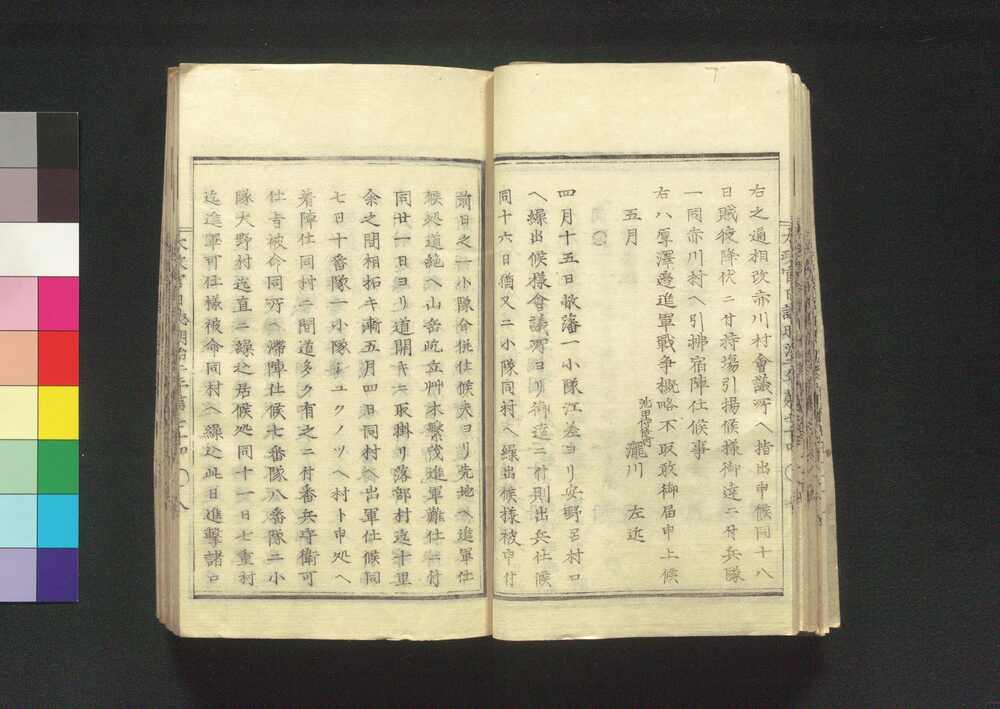 右之通相改赤川村會議所ヘ指出申候同十八
日賊徒降伏ニ付持場引揚候様御達ニ付兵隊
一同赤川村ヘ引揚宿陣仕候事
右ハ厚澤邊進軍戦争概略不取敢御届申上候
五月
瀧川 左近
四月十五日敝藩一小隊江差ヨリ安野呂村口
ヘ繰出候様會議所ヨリ御達ニ付則出兵仕候
同十六日猶又二小隊同村ヘ繰出候様被申付
前日之一小隊合併仕候夫ヨリ先地ヘ進軍仕
候処道絶ヘ山岳屹立艸木繁茂進軍難仕ニ付
同廿一日ヨリ道開キニ取掛リ落部村迄十里
余之間相拓キ漸五月四日同村ヘ出軍仕候同
七日十番隊一小隊シユクノツヘ村ト申処ヘ
着陣仕同村ニ間道多ク有之ニ付番兵守衛可
仕旨被命同所ヘ滞陣仕候七番隊八番隊二小
隊大野村迄直ニ繰込居候処同十一日七重村
迄進軍可仕様被命同村ヘ繰込此日進撃諸口